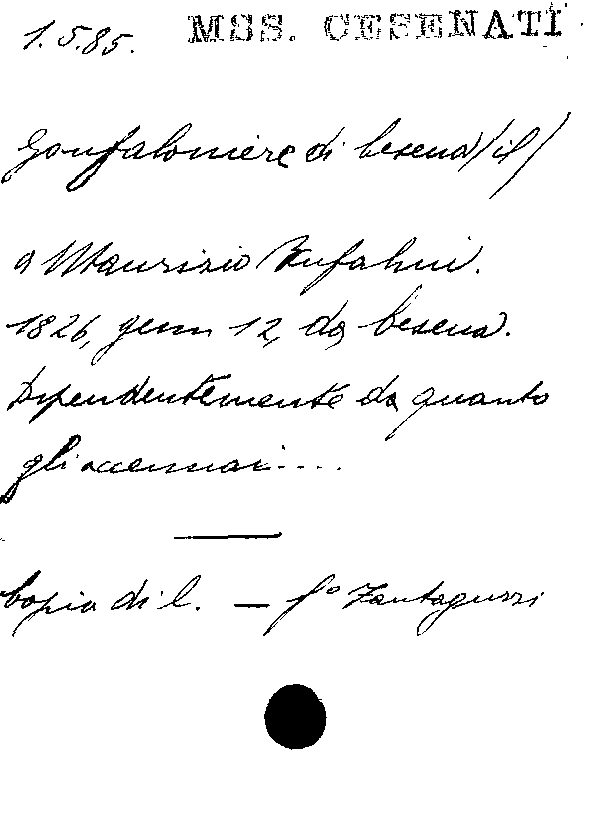 1.5.85. MSS. CESENATI
Gonfaloniere di Cesena /il/
a Maurizio Bufalini.
1826, genn 12, da Cesena.
Dipendentemente da quanto
gli accennai....
Copia di l. — fº Fantaguzzi